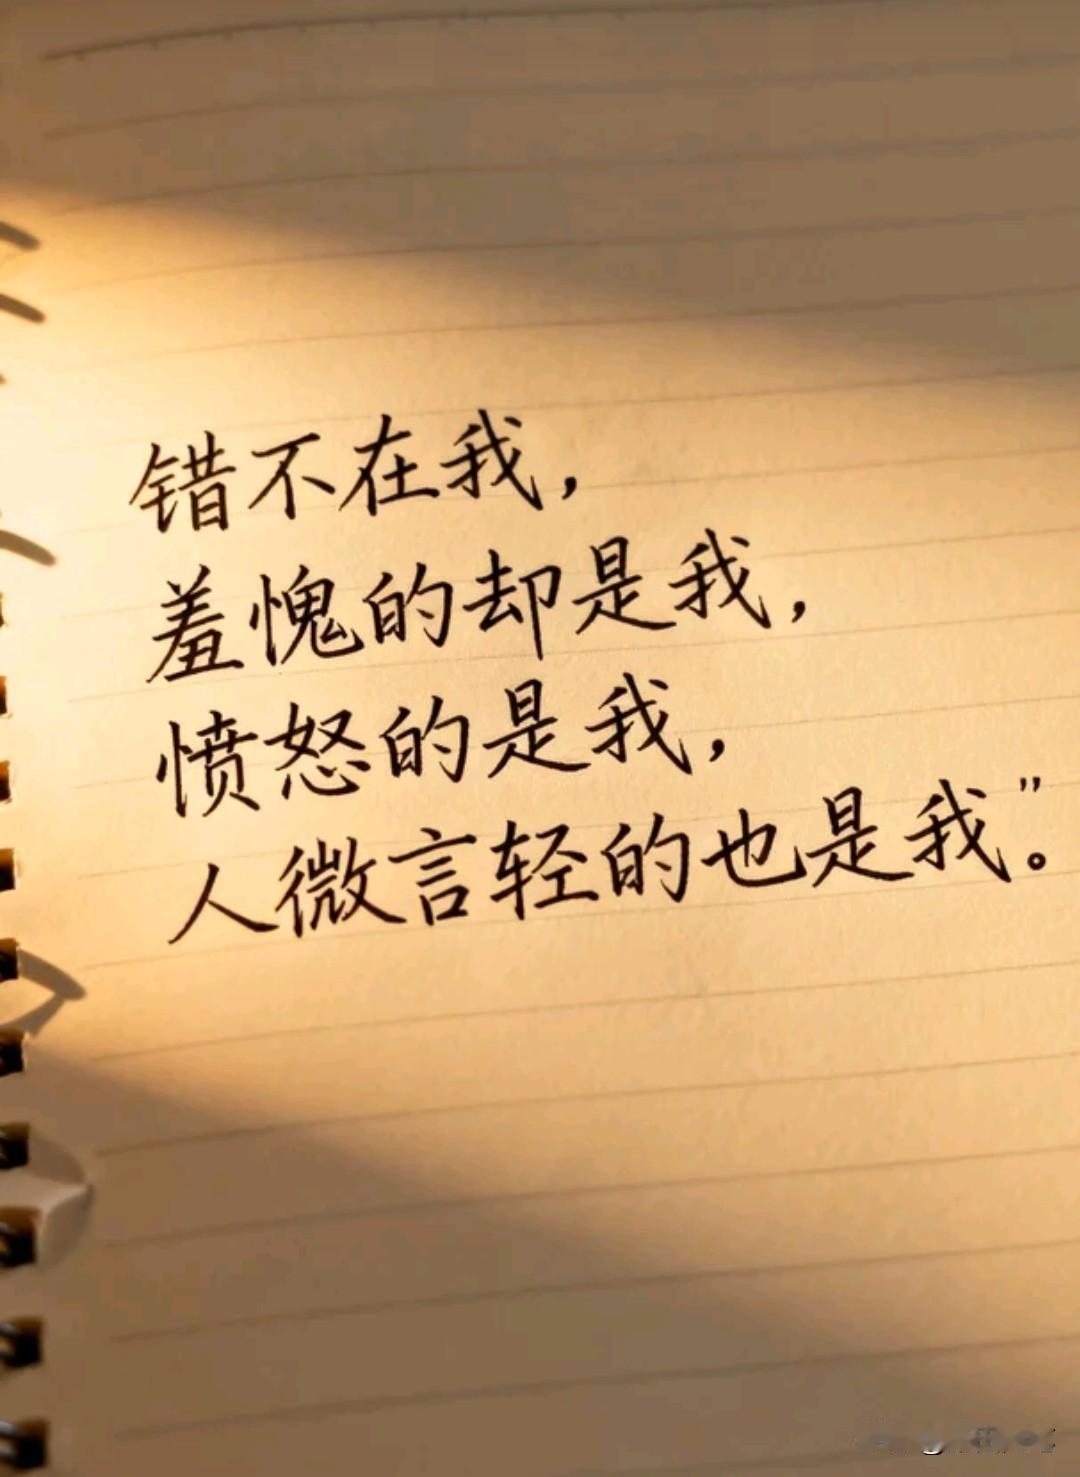 错不在我，
羞愧的却是我，
愤怒的是我，
人微言轻的也是我”。